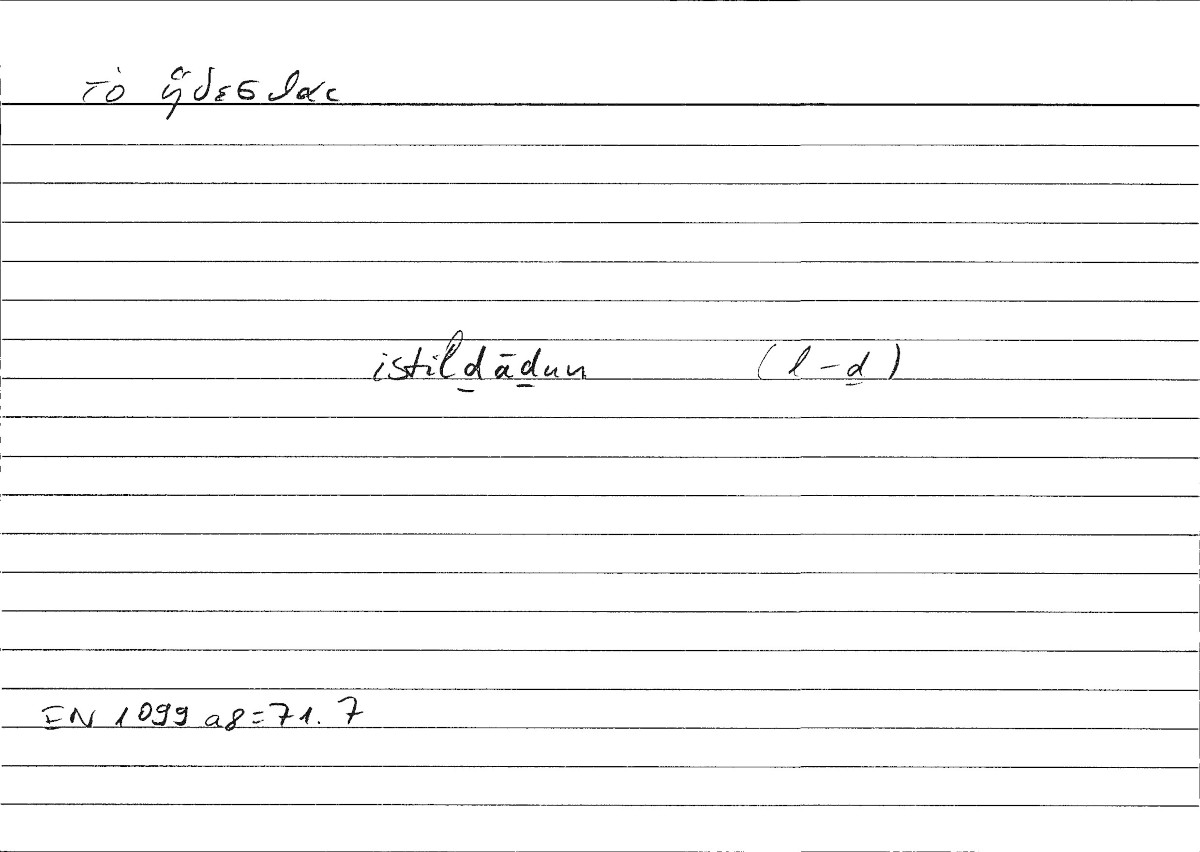 τὸ ἥδεσθαι
istilḏāḏun (l-ḏ)
EN 1099 a8=71.7